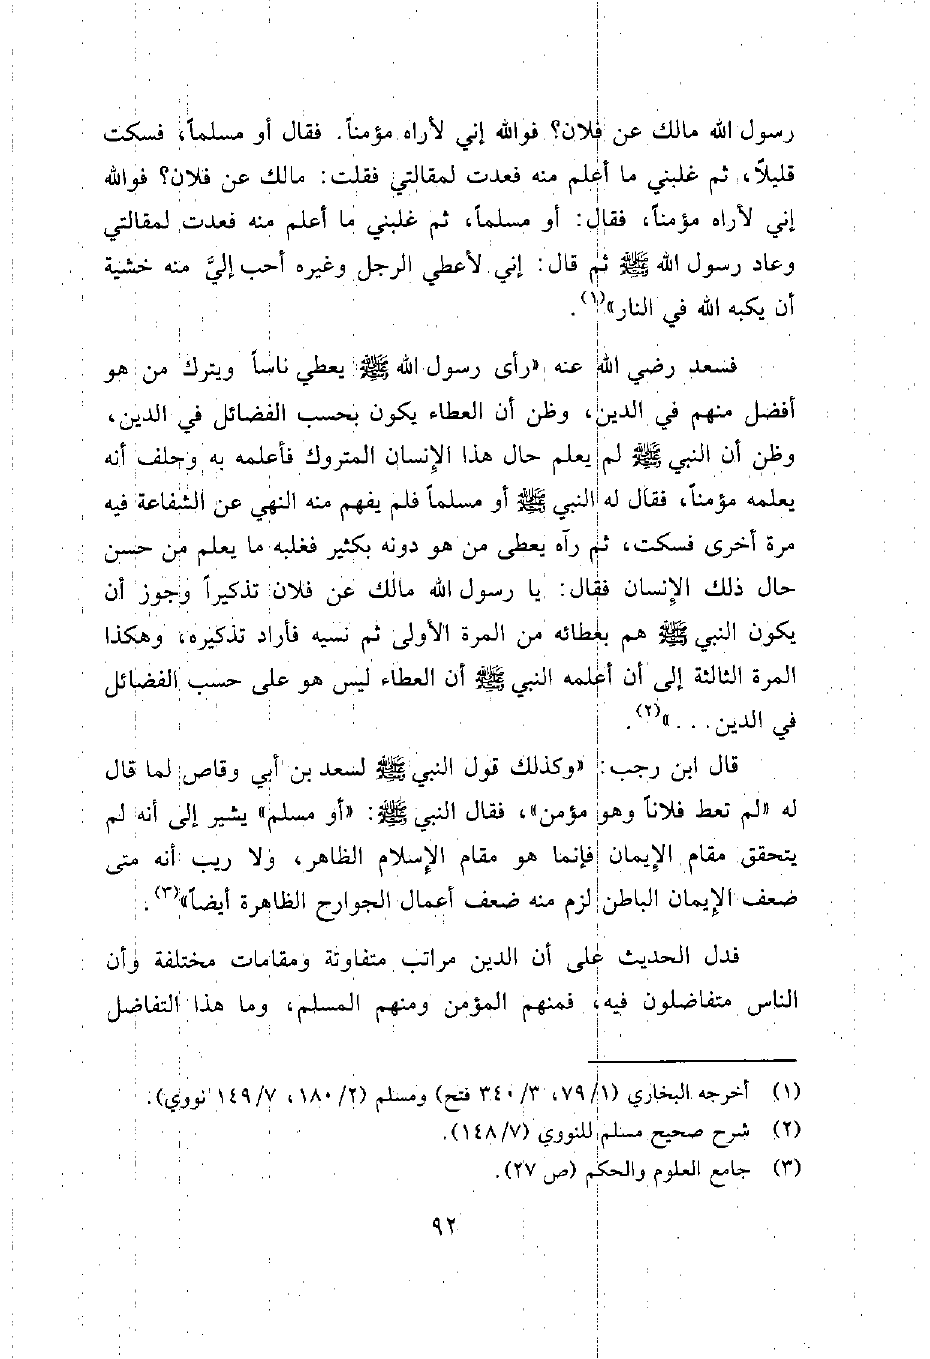 رسول الله مالك عن فلان؟ فوالله إني لأراه مؤمناً. فقال أو مسلماً، فسكت
قليلاً، ثم غلبني ما أعلم منه فعدت لمقالتي فقلت: مالك عن فلان؟ فوالله
إني لأراه مؤمناً، فقال: أو مسلماً، ثم غلبني ما أعلم منه فعدت لمقالتي
وعاد رسول الله ﷺ ثم قال: إني لأعطي الرجل وغيره أحب إليَّ منه خشية
أن يكبه الله في النار»(١).
فسعد رضي الله عنه «رأى رسول الله ﷺ يعطي ناساً ويترك من هو
أفضل منهم في الدين، وظن أن العطاء يكون بحسب الفضائل في الدين،
وظن أن النبي ﷺ لم يعلم حال هذا الإنسان المتروك فأعلمه به وحلف أنه
يعلمه مؤمناً، فقال له النبي ﷺ أو مسلماً فلم يفهم منه النهي عن الشفاعة فيه
مرة أخرى فسكت، ثم رآه يعطي من هو دونه بكثير فغلبه ما يعلم من حسن
حال ذلك الإنسان فقال: يا رسول الله مالك عن فلان تذكيراً وجوز أن
يكون النبي ﷺ هم بعطائه من المرة الأولى ثم نسيه فأراد تذكيره، وهكذا
المرة الثالثة إلى أن أعلمه النبي ﷺ أن العطاء ليس هو على حسب الفضائل
في الدين...»(٢).
قال ابن رجب: «وكذلك قول النبي ﷺ لسعد بن أبي وقاص لما قال
له «لم تعط فلاناً وهو مؤمن»، فقال النبي ﷺ: «أو مسلم» يشير إلى أنه لم
يتحقق مقام الإيمان فإنما هو مقام الإسلام الظاهر، ولا ريب أنه متى
ضعف الإيمان الباطن لزم منه ضعف أعمال الجوارح الظاهرة أيضاً»(٣).
فدل الحديث على أن الدين مراتب متفاوتة ومقامات مختلفة وأن
الناس متفاضلون فيه، فمنهم المؤمن ومنهم المسلم، وما هذا التفاضل
(١) أخرجه البخاري (٧٩/١، ٣٤٠/٣ فتح) ومسلم (١٨٠/٢، ١٤٩/٧ نووي).
(٢) شرح صحيح مسلم للنووي (١٤٨/٧).
(٣) جامع العلوم والحكم (ص ٢٧).
٩٢